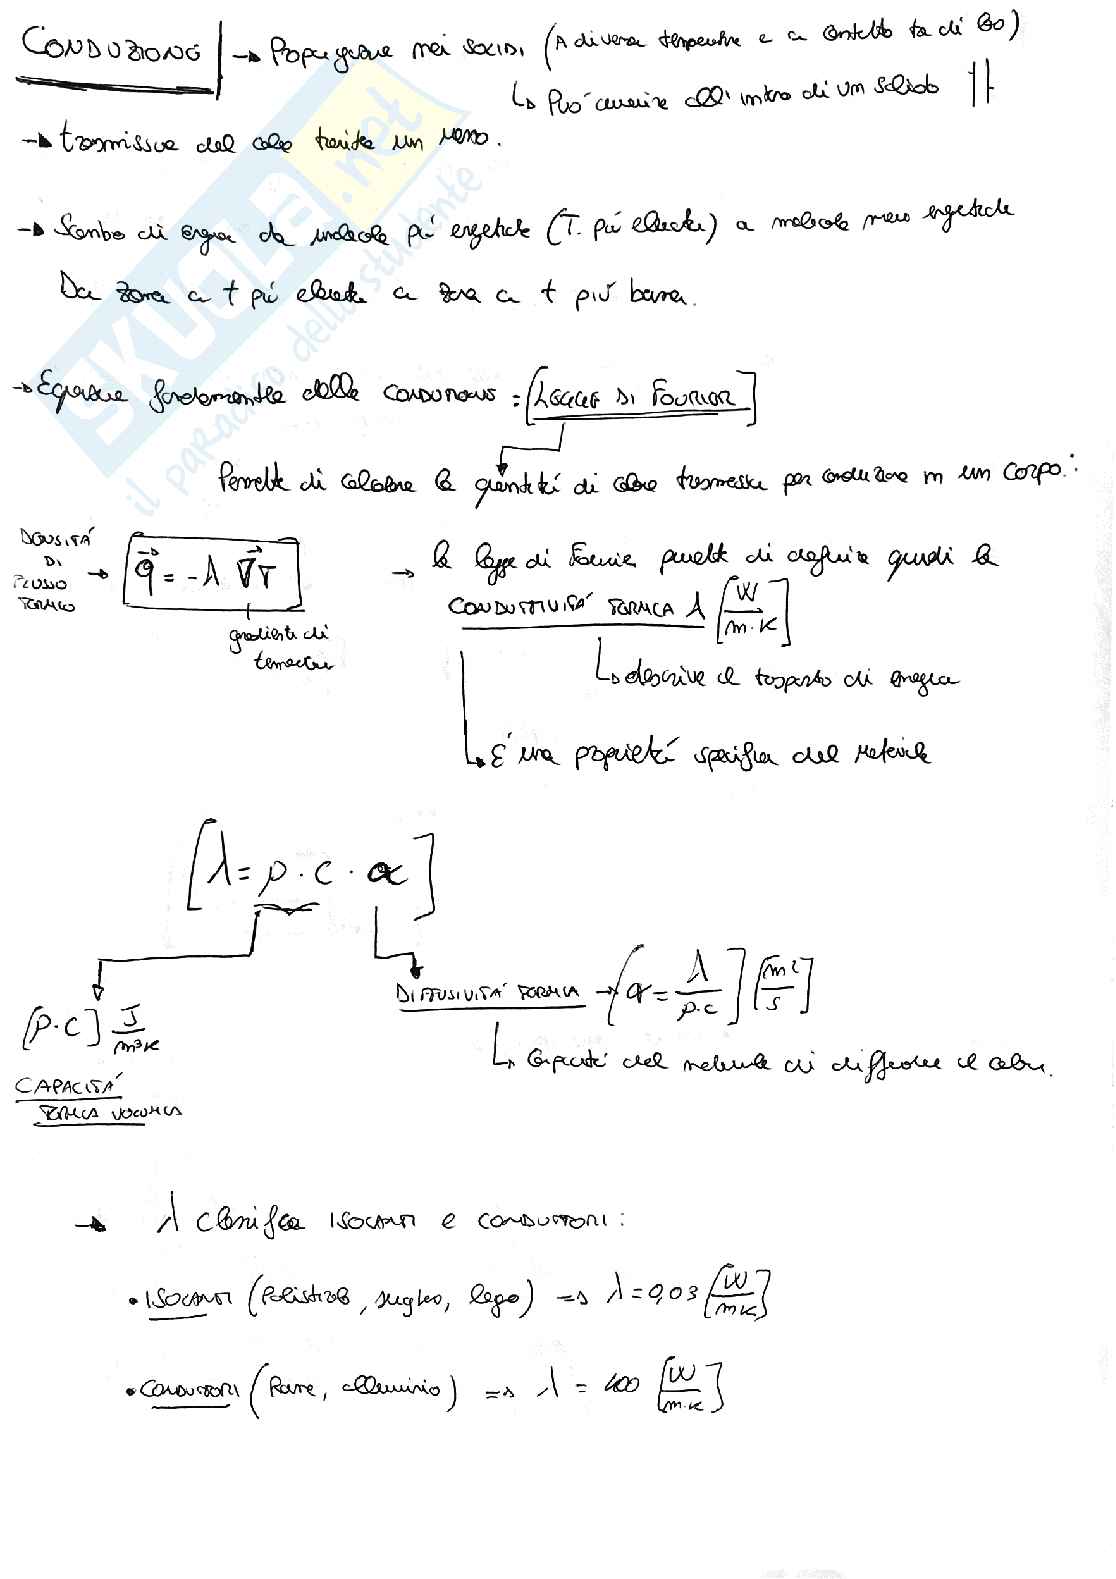 CONDUZIONE → Propagazione nei SOLIDI (A diversa temperatura e a contatto tra di loro)
↳ Può avvenire all'interno di un solido
→ trasmissione del calore tramite un mezzo.
→ Scambio di energia da molecole più energetiche (T. più elevate) a molecole meno energetiche
Da zona a t più elevata a zona a t più bassa.
→ Equazione fondamentale della CONDUZIONE = [LEGGE DI FOURIER]
Permette di calcolare la quantità di calore trasmessa per conduzione in un corpo:
DENSITÀ DI FLUSSO TERMICO → q⃗ = -λ ∇⃗T
gradiente di temperatura
→ la legge di Fourier permette di definire quindi la
CONDUTTIVITÀ TERMICA λ [W/m·K]
↳ descrive il trasporto di energia
↳ È una proprietà specifica del materiale
[λ = ρ · c · α]
DIFFUSIVITÀ TERMICA → [α = λ/ρ·c] [m²/s]
[ρ·c] J/m³K
↳ Capacità del materiale di diffondere il calore.
CAPACITÀ
TERMICA VOLUMICA
→ λ classifica ISOLANTI e CONDUTTORI:
• ISOLANTI (Polistirolo, sughero, legno) => λ = 0,03 [W/mK]
• CONDUTTORI (Rame, alluminio) => λ = 400 [W/m·K]
SKUOLA.net
il paradiso dello studente